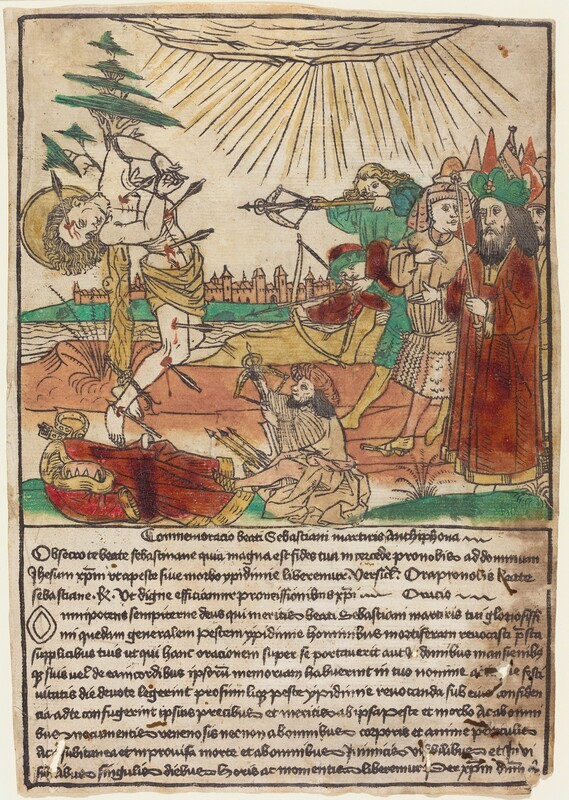 Commemoracio beati Sebastiani martiris Anthiphona
Obsecro te beate sebastiane quia magna est fides tua intercede pro nobis ad dominum
Jhesum xpm vt a peste siue morbo ypidimie liberemur. Versicl. Ora pro nobis beate
sebastiane. R. Vt digne efficiamur promissionibus xpi Oracio
Omnipotens sempiterne deus qui meritis beati Sebastiani martiris tui gloriosissi
mi quedam generalem pestem ypidimie hominibus mortiferam reuocasti psta
supplicibus tuis vt qui hanc oracionem super se portauerit aut in domibus mansionibus
siuis vel de ea in cordibus ipsorum memoriam habuerint in tuo nomine festi
uitatis die deuote legerint profim peste ypidimie reuocanda sub eius confiden
cia ad te confugerint ipsius precibus et meritis ab ipsa peste et morbo Ac ab omni
bus nocumentis venenosis necnon ab omnibus corporis et anime periculis
Ac subitanea et improuisa morte et ab omnibus Inimicis visibilibus et In vi
sibilibus singulis diebus horis ac momentis liberemur. Per xpm dnm